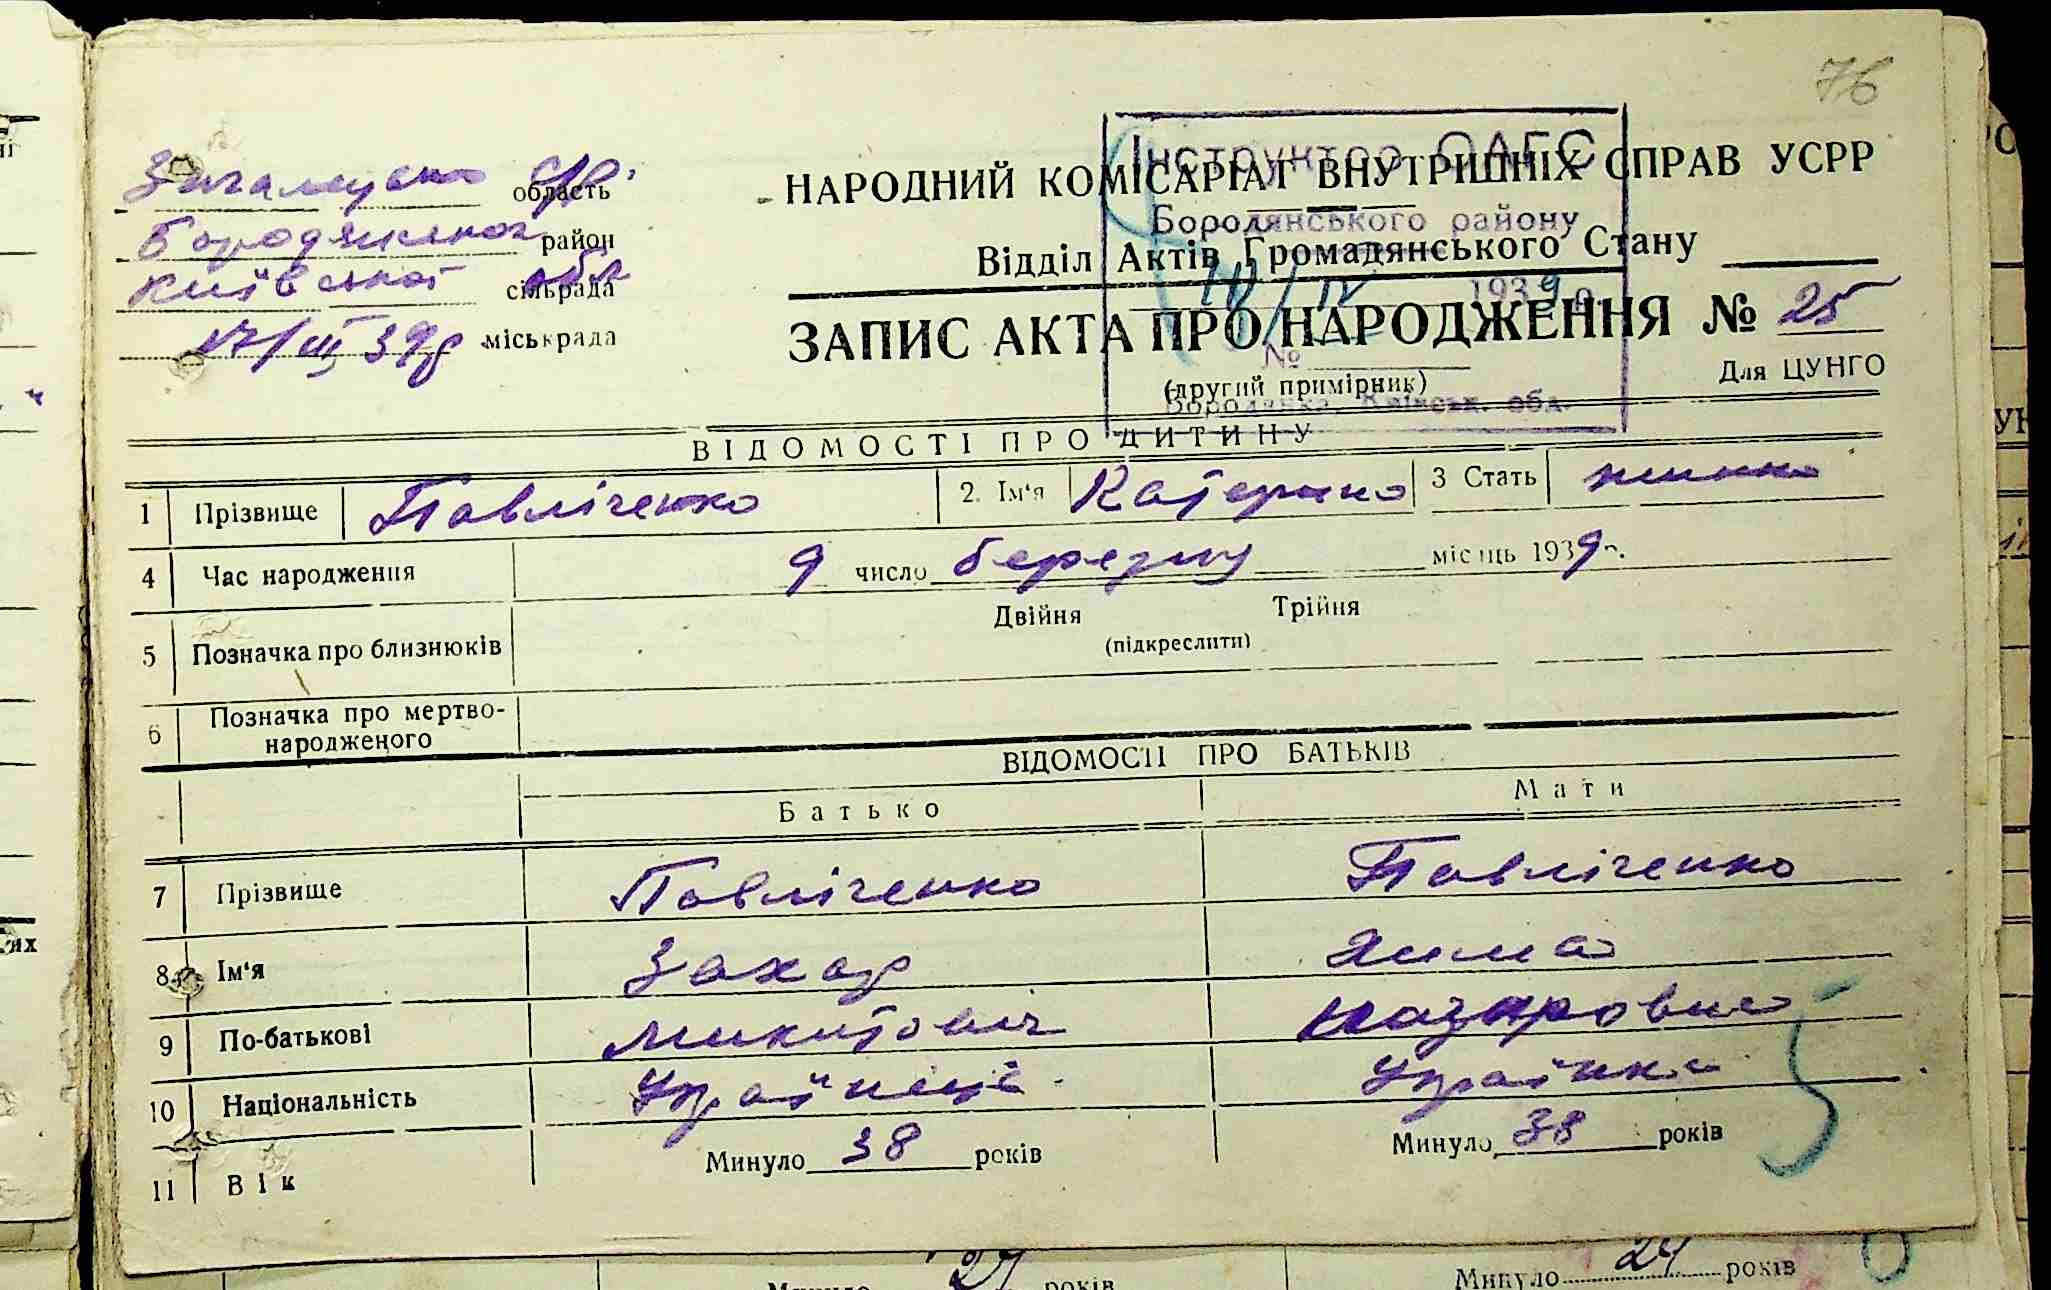 76
Загальцька с/р. область
Бородянской район
Київської обл сільрада
17/III 39р міськрада
Інструктор ОАГС
Бородянського району
10/IV 1939 р.
№
Бородянка, Київськ. обл.
НАРОДНИЙ КОМІСАРІАТ ВНУТРІШНІХ СПРАВ УСРР
Відділ Актів Громадянського Стану
ЗАПИС АКТА ПРО НАРОДЖЕННЯ № 25
(другий примірник)
Для ЦУНГО
ВІДОМОСТІ ПРО ДИТИНУ
1 Прізвище Павліченко 2. Ім'я Катерина 3 Стать жінка
4 Час народження 9 число березну місяць 1939 р.
5 Позначка про близнюків Двійня Трійня
(підкреслити)
6 Позначка про мертво-
народженого
ВІДОМОСТІ ПРО БАТЬКІВ
Батько Мати
7 Прізвище Павліченко Павліченко
8 Ім'я Захар Якима
9 По-батькові Микитович Назаровна
10 Національність Українець Українка
11 Вік Минуло 38 років Минуло 38 років
Минуло 27 років Минуло 24 років